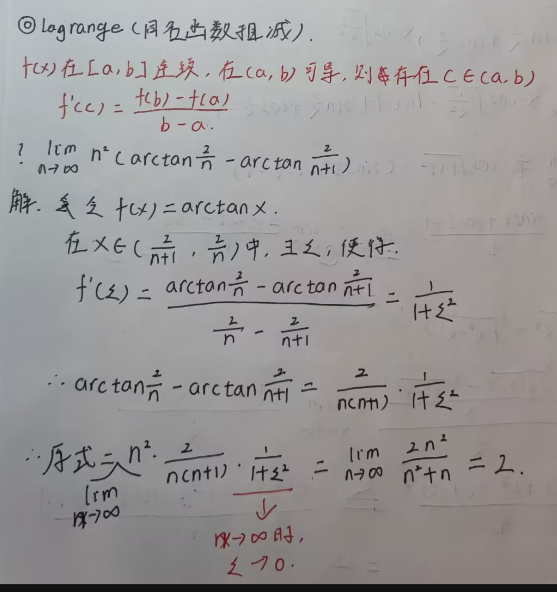 ◎ Lagrange (同名函数相减).
f(x)在[a,b]连续,在(a,b)可导,则存在C∈(a,b)
f'(c) = \frac{f(b)-f(a)}{b-a}.
? \lim_{n→∞} n²(arctan\frac{2}{n} - arctan\frac{2}{n+1})
解. 令 f(x)=arctanx.
在X∈(\frac{2}{n+1}, \frac{2}{n})中,∃ξ,使得.
f'(ξ) = \frac{arctan\frac{2}{n} - arctan\frac{2}{n+1}}{\frac{2}{n} - \frac{2}{n+1}} = \frac{1}{1+ξ²}
∴ arctan\frac{2}{n} - arctan\frac{2}{n+1} = \frac{2}{n(n+1)} · \frac{1}{1+ξ²}
∴原式 = \lim_{n→∞} n² · \frac{2}{n(n+1)} · \frac{1}{1+ξ²} = \lim_{n→∞} \frac{2n²}{n²+n} = 2.
n→∞时,
ξ→0.